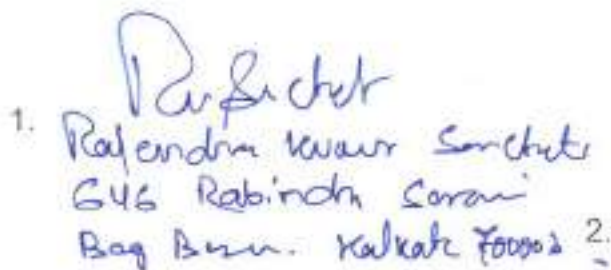 1.
Rajendra Kumar Sancheti
646 Rabindra Sarani
Bag Bazar. Kolkata 700003 2.